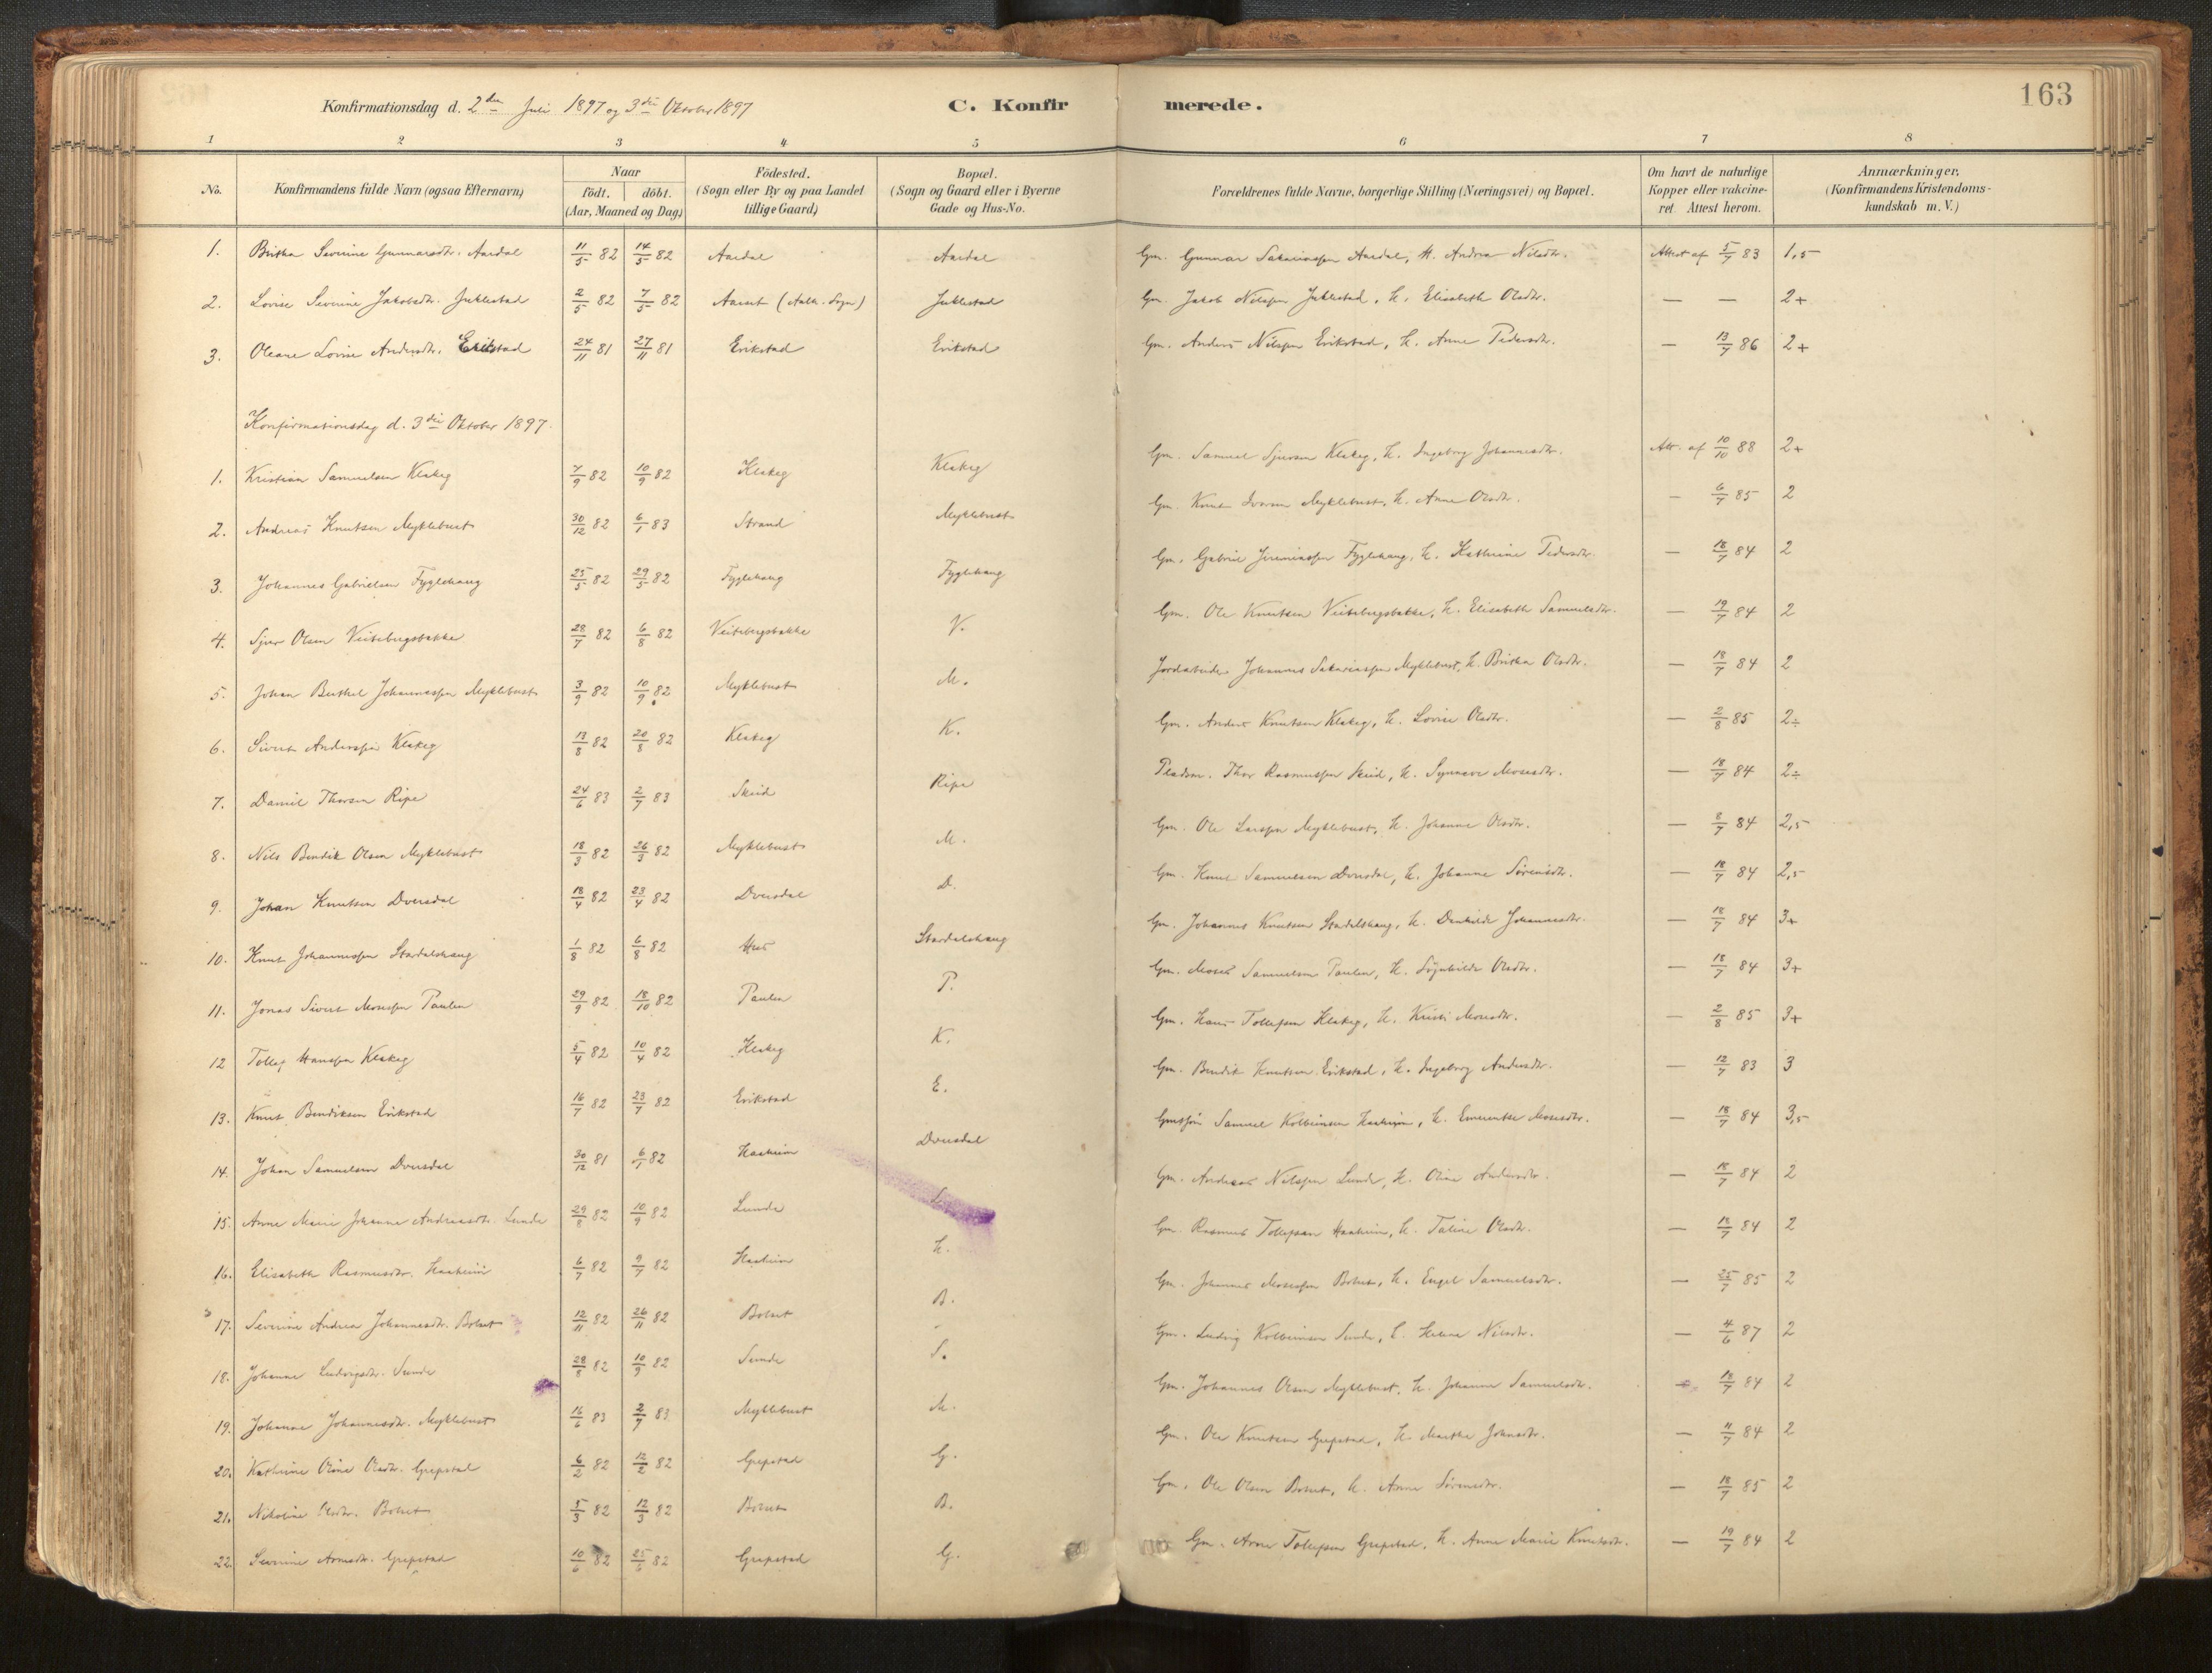 163
Konfirmationsdag d. 2den Juli 1897 og 3die Oktober 1897
C. Konfirmerede.
1 2 3 4 5 6 7 8
No. | Konfirmandens fulde Navn (ogsaa Efternavn) | Naar födt. döbt. (Aar, Maaned og Dag) | Födested. (Sogn eller By og paa Landet tillige Gaard) | Bopæl. (Sogn og Gaard eller i Byerne Gade og Hus-No. | Forældrenes fulde Navne, borgerlige Stilling (Næringsvei) og Bopæl. | Om havt de naturlige Kopper eller vakcineret Attest herom. | Anmærkninger. (Konfirmandens Kristendomskundskab m. V.)
1. Brithe Severine Gunnarsdtr. Aardal 11/5 82 14/5 82 Aardal Aardal Gm. Gunnar Sakariassen Aardal, H. Andrea Nilsdtr. Attest af 5/7 83 1,5
2. Lovise Severine Jakobsdtr. Juklestad 2/5 82 7/5 82 Aamot Juklestad Gm. Jakob Nilssen Juklestad, H. Elisabeth Olsdtr. — — 2+
3. Oleane Lovise Andersdtr. Erikstad 24/11 81 27/11 81 Erikstad Erikstad Gm. Anders Nilssen Erikstad, H. Anne Pedersdtr. — 13/7 86 2+
Konfirmationsdag d. 3die Oktober 1897.
1. Kristian Samuelsen Klakeg 7/9 82 10/9 82 Klakeg Klakeg Gm. Samuel Sjursen Klakeg, H. Ingeborg Johannesdtr. Att. af 10/10 88 2+
2. Andreas Knutsen Myklebust 30/12 82 6/1 83 Strand Myklebust Gm. Knut Iversen Myklebust, H. Anne Olsdtr. — 6/7 85 2
3. Johannes Gabrielsen Fyglehaug 25/5 82 29/5 82 Fyglehaug Fyglehaug Gm. Gabriel Jeremiassen Fyglehaug, H. Kathrine Pedersdtr. — 18/7 84 2
4. Sjur Olsen Veitebergsbakke 28/7 82 6/8 82 Veitebergsbakke V. Gm. Ole Knutsen Veitebergsbakke, H. Elisabeth Samuelsdtr. — 19/7 84 2
5. Johan Berthel Johannessen Myklebust 3/9 82 10/9 82 Myklebust M. Jordarbeider Johannes Sakariassen Myklebust, H. Brithe Olsdtr. — 18/7 84 2
6. Sivert Anderssen Klakeg 13/8 82 20/8 82 Klakeg K. Gm. Anders Knutsen Klakeg, H. Lovise Olsdtr. — 2/8 85 2÷
7. Daniel Thorsen Ripe 24/6 83 2/7 83 Skeid Ripe Pladsm. Thor Rasmussen Skeid, H. Synneve Mosesdtr. — 18/7 84 2÷
8. Nils Bendik Olsen Myklebust 18/3 82 26/3 82 Myklebust M. Gm. Ole Larssen Myklebust, H. Johanne Olsdtr. — 8/7 84 2,5
9. Johan Knutsen Dvergsdal 18/4 82 23/4 82 Dvergsdal D. Gm. Knut Samuelsen Dvergsdal, H. Johanne Sørensdtr. — 18/7 84 2,5
10. Knut Johannessen Stardalshaug 1/8 82 6/8 82 Hus Stardalshaug Gm. Johannes Knutsen Stardalshaug, H. Johannesdtr. — 18/7 84 3+
11. Jonas Sivert Mosessen Paulen 29/9 82 18/10 82 Paulen P. Gm. Moses Samuelsen Paulen, H. Olsdtr. — 18/7 84 3+
12 Tollef Hanssen Klakeg 5/4 82 10/4 82 Klakeg K. Gm. Hans Tollefsen Klakeg, H. Kristi Mosesdtr. — 2/8 85 3+
13. Knut Bendiksen Erikstad 16/7 82 23/7 82 Erikstad E. Gm. Bendik Knutsen Erikstad, H. Ingeborg Andersdtr. — 12/7 83 3
14. Johan Samuelsen Dvergsdal 30/12 81 6/1 82 Haaheim Dvergsdal Samuel Kolbeinsen Haaheim, H. Emerentse Mosesdtr. — 18/7 84 3,5
15. Anne Marie Johanne Andreasdtr. Lunde 29/8 82 10/9 82 Lunde L. Gm. Andreas Nilssen Lunde, H. Oline Andersdtr. — 18/7 84 2
16. Elisabeth Rasmusdtr. Haaheim 6/7 82 9/7 82 Haaheim H. Gm. Rasmus Tollefsen Haaheim, H. Taline Olsdtr. — 18/7 84 2
17. Severine Andrea Johannesdtr. Bolset 12/11 82 26/11 82 Bolset B. Gm. Johannes Mosessen Bolset, H. Engel Samuelsdtr. — 25/7 85 2
18. Johanne Ludvigsdtr. Sunde 28/8 82 10/9 82 Sunde S. Gm. Ludvig Kolbeinsen Sunde, H. Helene Nilsdtr. — 4/6 87 2
19. Johanne Johannesdtr. Myklebust 16/6 83 2/7 83 Myklebust M. Gm. Johannes Olsen Myklebust, H. Johanne Samuelsdtr. — 18/7 84 2
20. Kathrine Oline Olsdtr. Grepstad 6/2 82 12/2 82 Grepstad G. Gm. Ole Knutsen Grepstad, H. Marthe Johnsdtr. — 11/7 84 2
21. Nikoline Olsdtr. Bolset 5/3 82 12/3 82 Bolset B. Gm. Ole Olsen Bolset, H. Anne Sørensdtr. — 18/7 85 2
22. Severine Arnesdtr. Grepstad 10/6 82 25/6 82 Grepstad G. Gm. Arne Tollefsen Grepstad, H. Anne Marie Knutsdtr. — 19/7 84 2